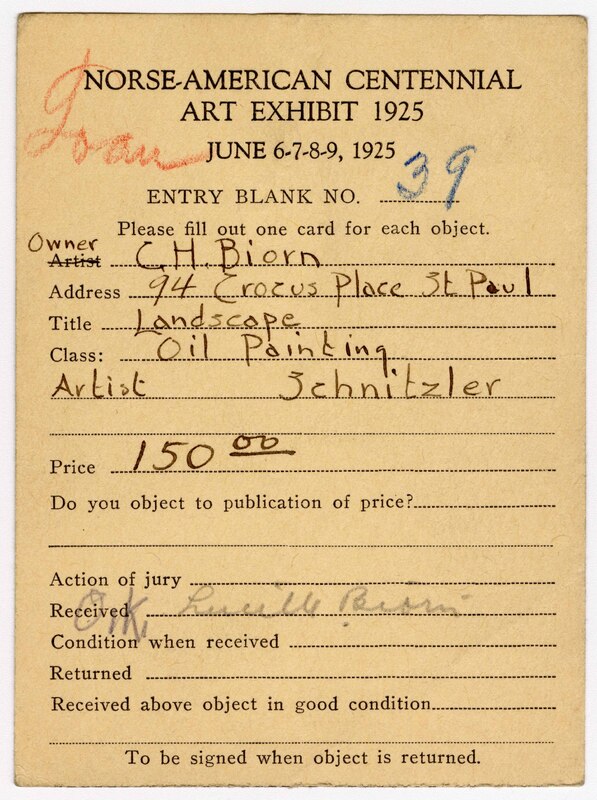 NORSE-AMERICAN CENTENNIAL
ART EXHIBIT 1925
Loan
JUNE 6-7-8-9, 1925
ENTRY BLANK NO. 39
Please fill out one card for each object.
Owner
Artist C. H. Biorn
Address 94 Crocus Place St Paul
Title Landscape
Class: Oil Painting
Artist Schnitzler
Price 150 00
Do you object to publication of price?
Action of jury
Received Lucille Biorn
O.K.
Condition when received
Returned
Received above object in good condition
To be signed when object is returned.